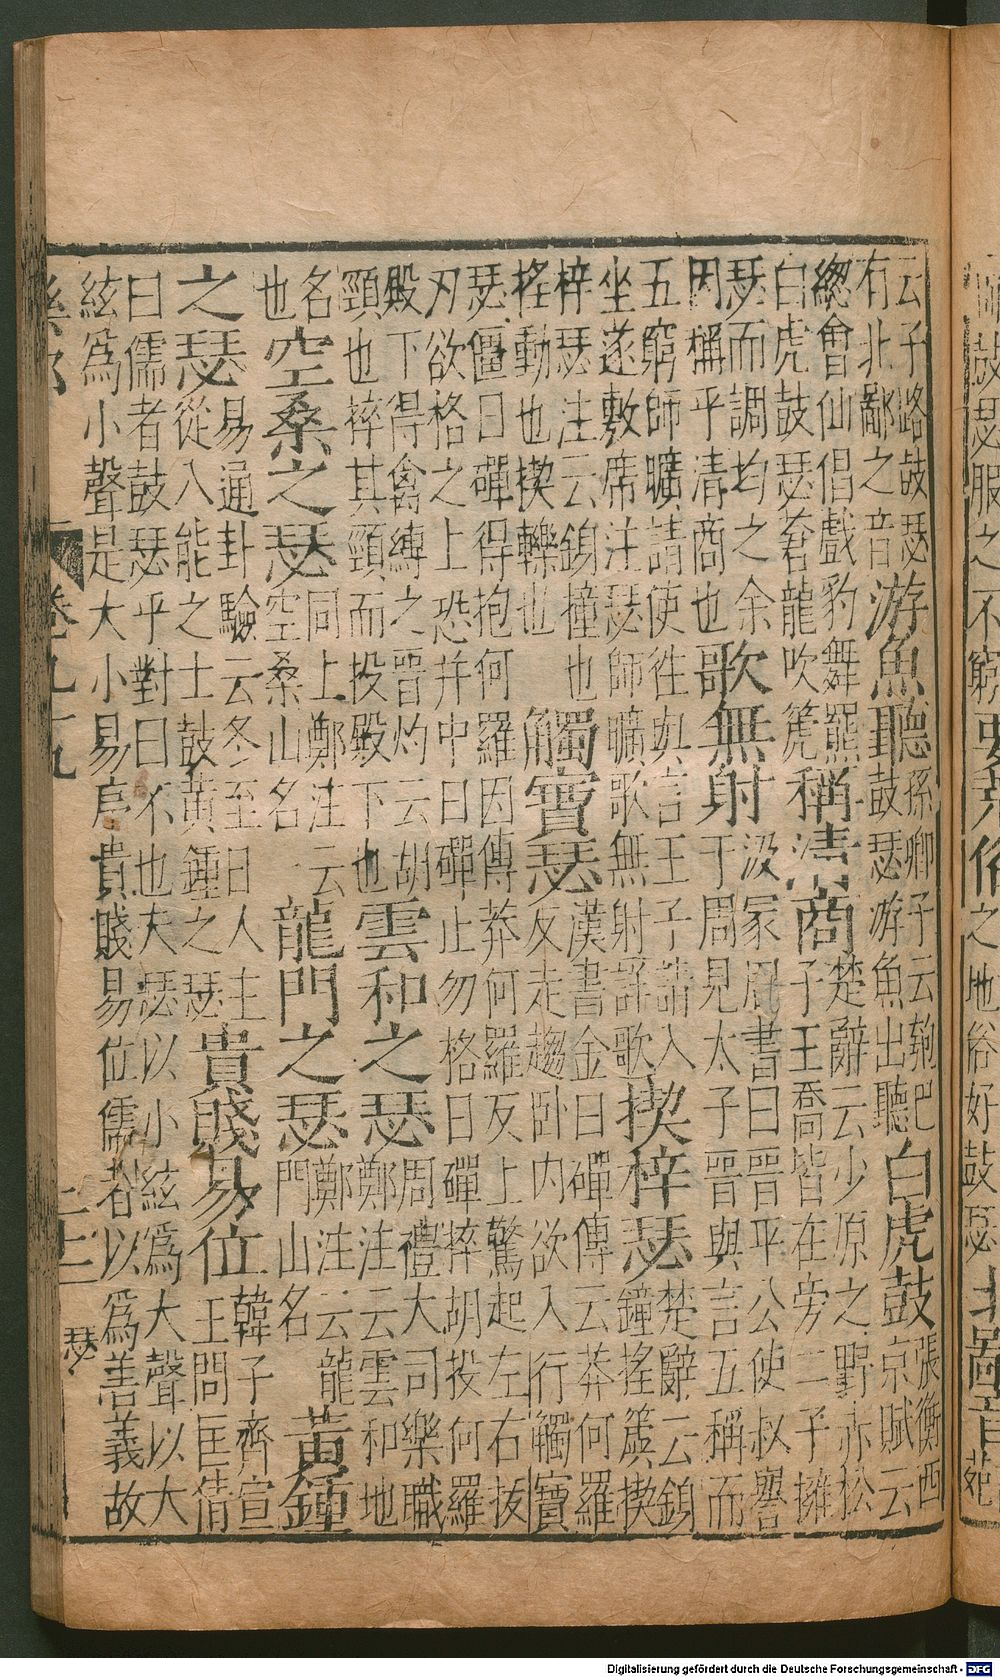 鼓瑟服之不窮
俗之地俗好鼓瑟北鄙音
云子路鼓瑟
有北鄙之音
游魚聽
孫卿子云瓠巴
鼓瑟游魚出聽
白虎鼓
張衡西
京賦云
總會仙倡戲豹舞羆
白虎鼓瑟蒼龍吹篪
稱清商
楚辭云少原之野赤松
子王喬皆在旁二子擁
瑟而調均之余
因稱乎清商也
歌無射
汲冢周書曰晉平公使叔譽
于周見太子晉與言五稱而
五窮師曠請使往與言王子請入
坐遂敷席注瑟師曠歌無射譯歌
楔梓瑟
楚辭云鎖
鐘搖簴楔
梓瑟注云鎖撞也
搖動也楔轢也
觸寶瑟
漢書金日磾傳云莽何羅
反走趨卧内欲入行觸寶
瑟僵日磾得抱何羅因傳莽何羅反上驚起左右拔
刃欲格之上恐并中日磾止勿格日磾捽胡投何羅
殿下得禽縛之晉灼云胡
頸也捽其頸而投殿下也
雲和之瑟
周禮大司樂職
鄭注云雲和地
名
也
空桑之瑟
同上鄭注云
空桑山名
龍門之瑟
鄭注云龍
門山名
黃鍾
之瑟
易通卦驗云冬至日人主
從八能之士鼓黃鍾之瑟
貴賤易位
韓子齊宣
王問匡倩
曰儒者鼓瑟乎對曰不也夫瑟以小絃爲大聲以大
絃爲小聲是大小易序貴賤易位儒者以爲善義故
卷九十九
十二
瑟
Digitalisierung gefördert durch die Deutsche Forschungsgemeinschaft - DFG